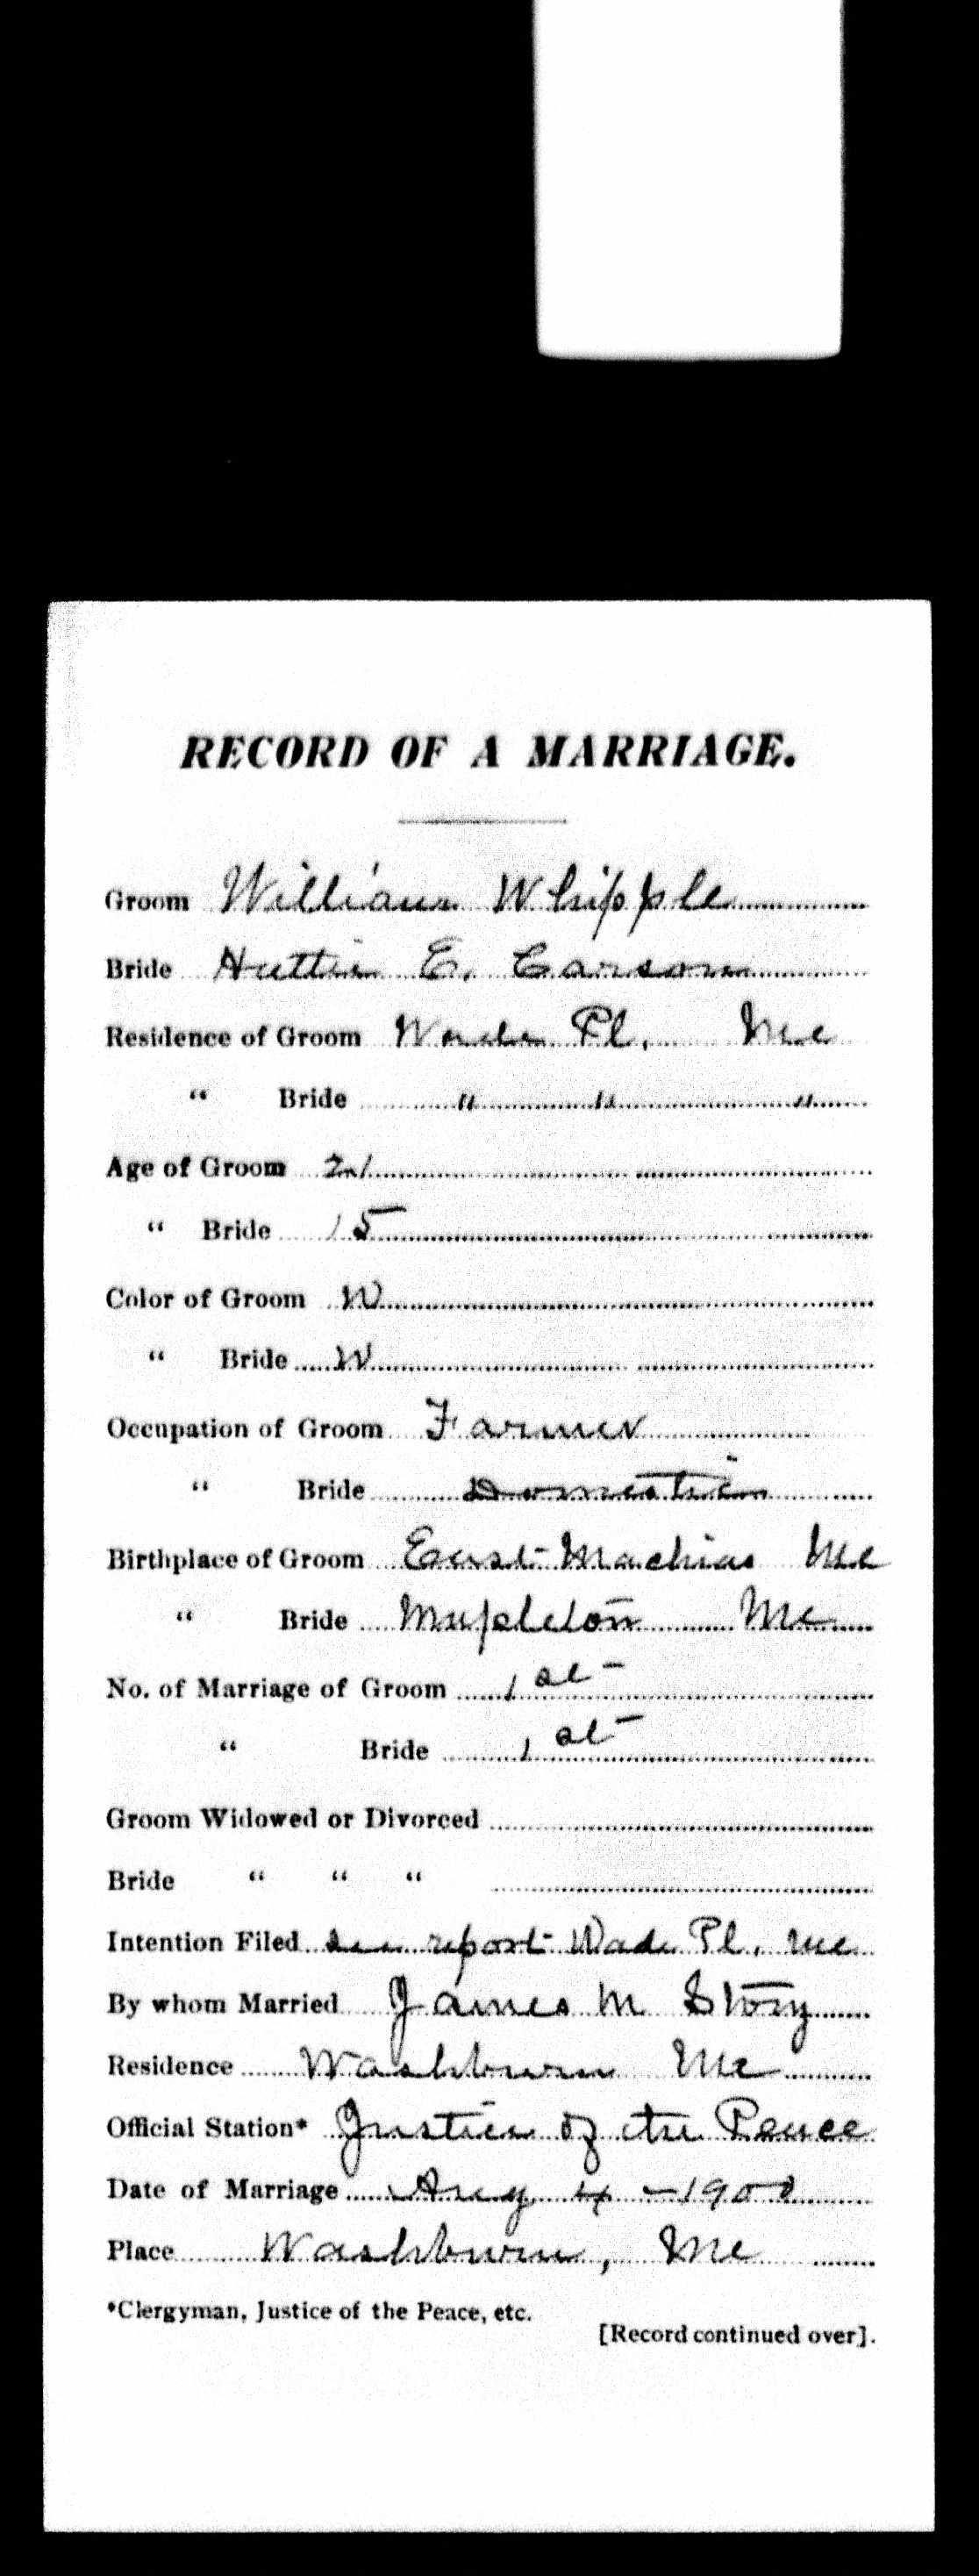 RECORD OF A MARRIAGE.
Groom William Whipple
Bride Hattie E. Carson
Residence of Groom Wade Pl. Me
" Bride " " "
Age of Groom 21
" Bride 15
Color of Groom W
" Bride W
Occupation of Groom Farmer
" Bride Domestic
Birthplace of Groom East Machias Me
" Bride Mapleton Me
No. of Marriage of Groom 1st
" Bride 1st
Groom Widowed or Divorced
Bride " " "
Intention Filed see report Wade Pl. Me
By whom Married James M Story
Residence Washburn Me
Official Station* Justice of the Peace
Date of Marriage Aug 4 - 1900
Place Washburn, Me
*Clergyman, Justice of the Peace, etc.
[Record continued over].